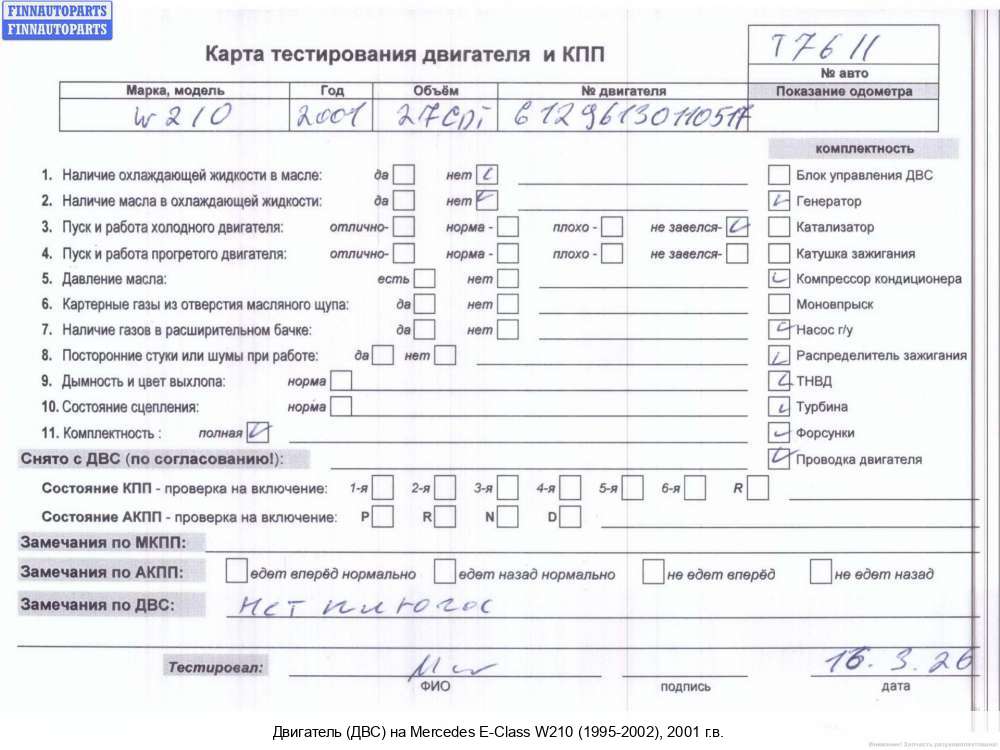 FINNAUTOPARTS
FINNAUTOPARTS
Карта тестирования двигателя и КПП
T7611
№ авто
Марка, модель Год Объём № двигателя Показание одометра
W210 2001 27CDi 61296130110517
комплектность
1. Наличие охлаждающей жидкости в масле: да нет Блок управления ДВС
2. Наличие масла в охлаждающей жидкости: да нет Генератор
3. Пуск и работа холодного двигателя: отлично- норма - плохо - не завелся- Катализатор
4. Пуск и работа прогретого двигателя: отлично- норма - плохо - не завелся- Катушка зажигания
5. Давление масла: есть нет Компрессор кондиционера
6. Картерные газы из отверстия масляного щупа: да нет Моновпрыск
7. Наличие газов в расширительном бачке: да нет Насос г/у
8. Посторонние стуки или шумы при работе: да нет Распределитель зажигания
9. Дымность и цвет выхлопа: норма ТНВД
10. Состояние сцепления: норма Турбина
11. Комплектность : полная Форсунки
Снято с ДВС (по согласованию!): Проводка двигателя
Состояние КПП - проверка на включение: 1-я 2-я 3-я 4-я 5-я 6-я R
Состояние АКПП - проверка на включение: P R N D
Замечания по МКПП:
Замечания по АКПП: едет вперёд нормально едет назад нормально не едет вперёд не едет назад
Замечания по ДВС: Нет
Тестировал: 16.3.26
ФИО подпись дата
Двигатель (ДВС) на Mercedes E-Class W210 (1995-2002), 2001 г.в.
Внимание! Запчасть разукомплектована!